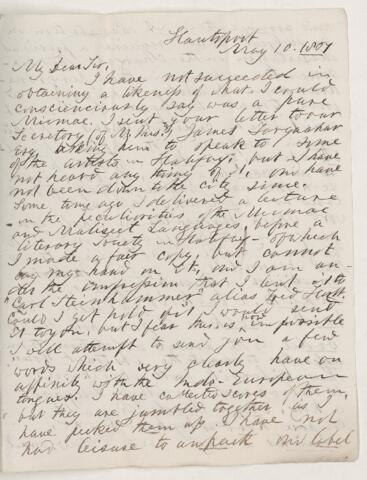 Hantsport
May 10. 1887
My Dear Sir,
I have not succeeded in
obtaining a likeness of what I could
conscienciously say was a pure
Micmac. I sent your letter to our
Secretary (of My Miss.) James Farquhar
Esq. asking him to speak to some
of the artists in Halifax; but I have
not heard any thing of it, and have
not been down to the city since.
Some time ago I delivered a lecture
on the peculiarities of the Micmac
and Maliseet Languages, before a
literary Society in Halifax - of which
I made a fair copy, but cannot
lay my hand on it, and I am un-
der the impression that I lent it to
"Carl Steinhammer" alias
Could I get hold of it I would send
it to you, but I fear this is impossible
I will attempt to send you a few
words which very clearly have an
affinity with the Indo-European
tongues. I have collected scores of them,
but they are jumbled together as I
have picked them up. I have not
had leisure to unpack and label